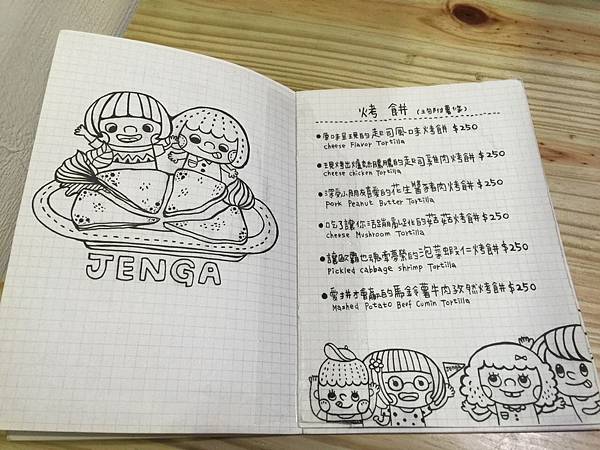 JENGA
烤餅 (上句附薯條)
原味呈現的起司風味烤餅 $250
cheese Flavor Tortilla
現烤出爐熱騰騰的起司雞肉烤餅 $250
cheese chicken Tortilla
深受小朋友喜愛的花生醬豬肉烤餅 $250
Pork Peanut Butter Tortilla
吃了讓你活蹦亂跳的菇菇烤餅 $250
cheese Mushroom Tortilla
讓歐霸也瑞柔夢縈的泡菜蝦仁烤餅 $250
Pickled cabbage shrimp Tortilla
愛拼才會贏的馬鈴薯牛肉孜然烤餅 $250
Mashed Potato Beef Cumin Tortilla
JENGA